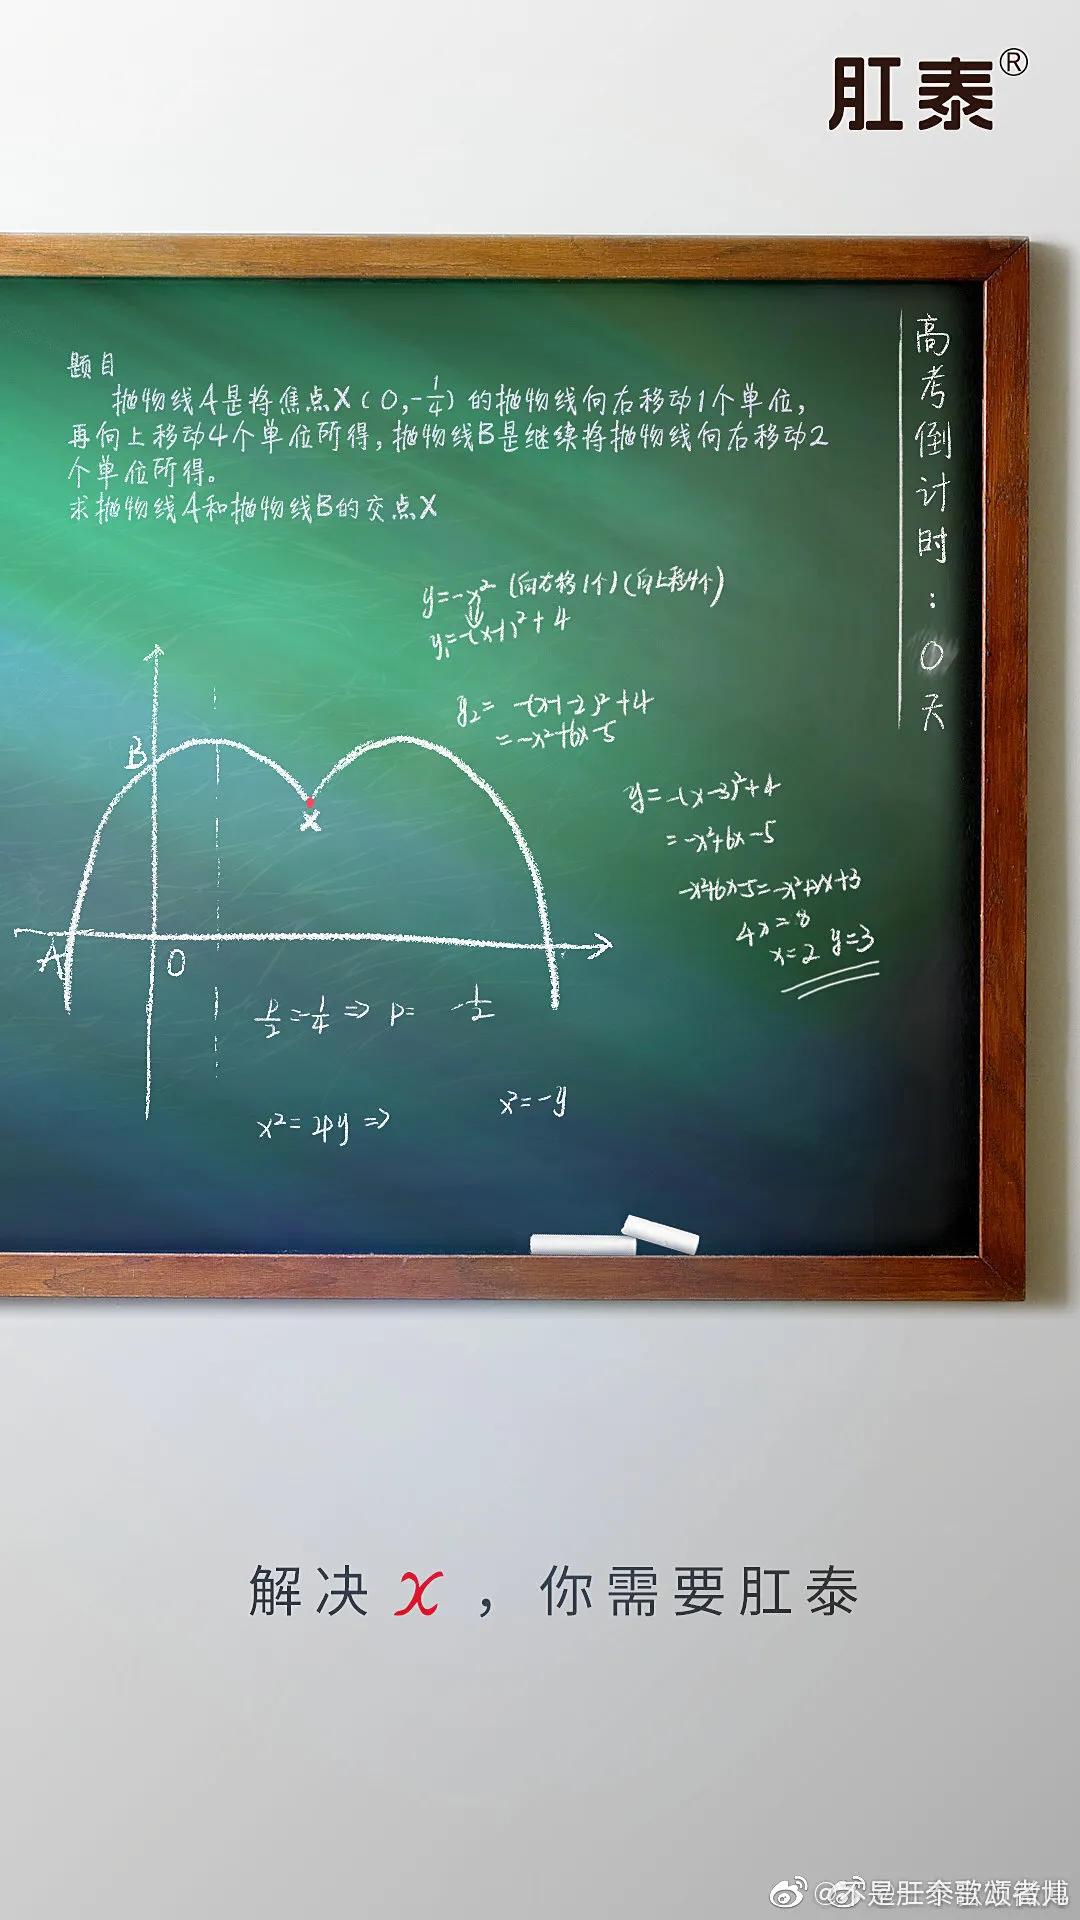 肛泰®
高考倒计时:0天
题目
抛物线A是将焦点X(0,-1/4)的抛物线向右移动1个单位,
再向上移动4个单位所得,抛物线B是继续将抛物线向右移动2
个单位所得。
求抛物线A和抛物线B的交点X
y=-x² (向右移1个)(向上移4个)
y₁=-(x-1)²+4
y₂= -(x-1-2)²+4
=-x²+6x-5
y=-(x-3)²+4
=-x²+6x-5
-x²+6x-5=-x²+2x+3
4x=8
x=2 y=3
B
X
A
O
p/2=-1/4 ⇒ p= -1/2
x²=2py ⇒ x²=-y
解决x,你需要肛泰